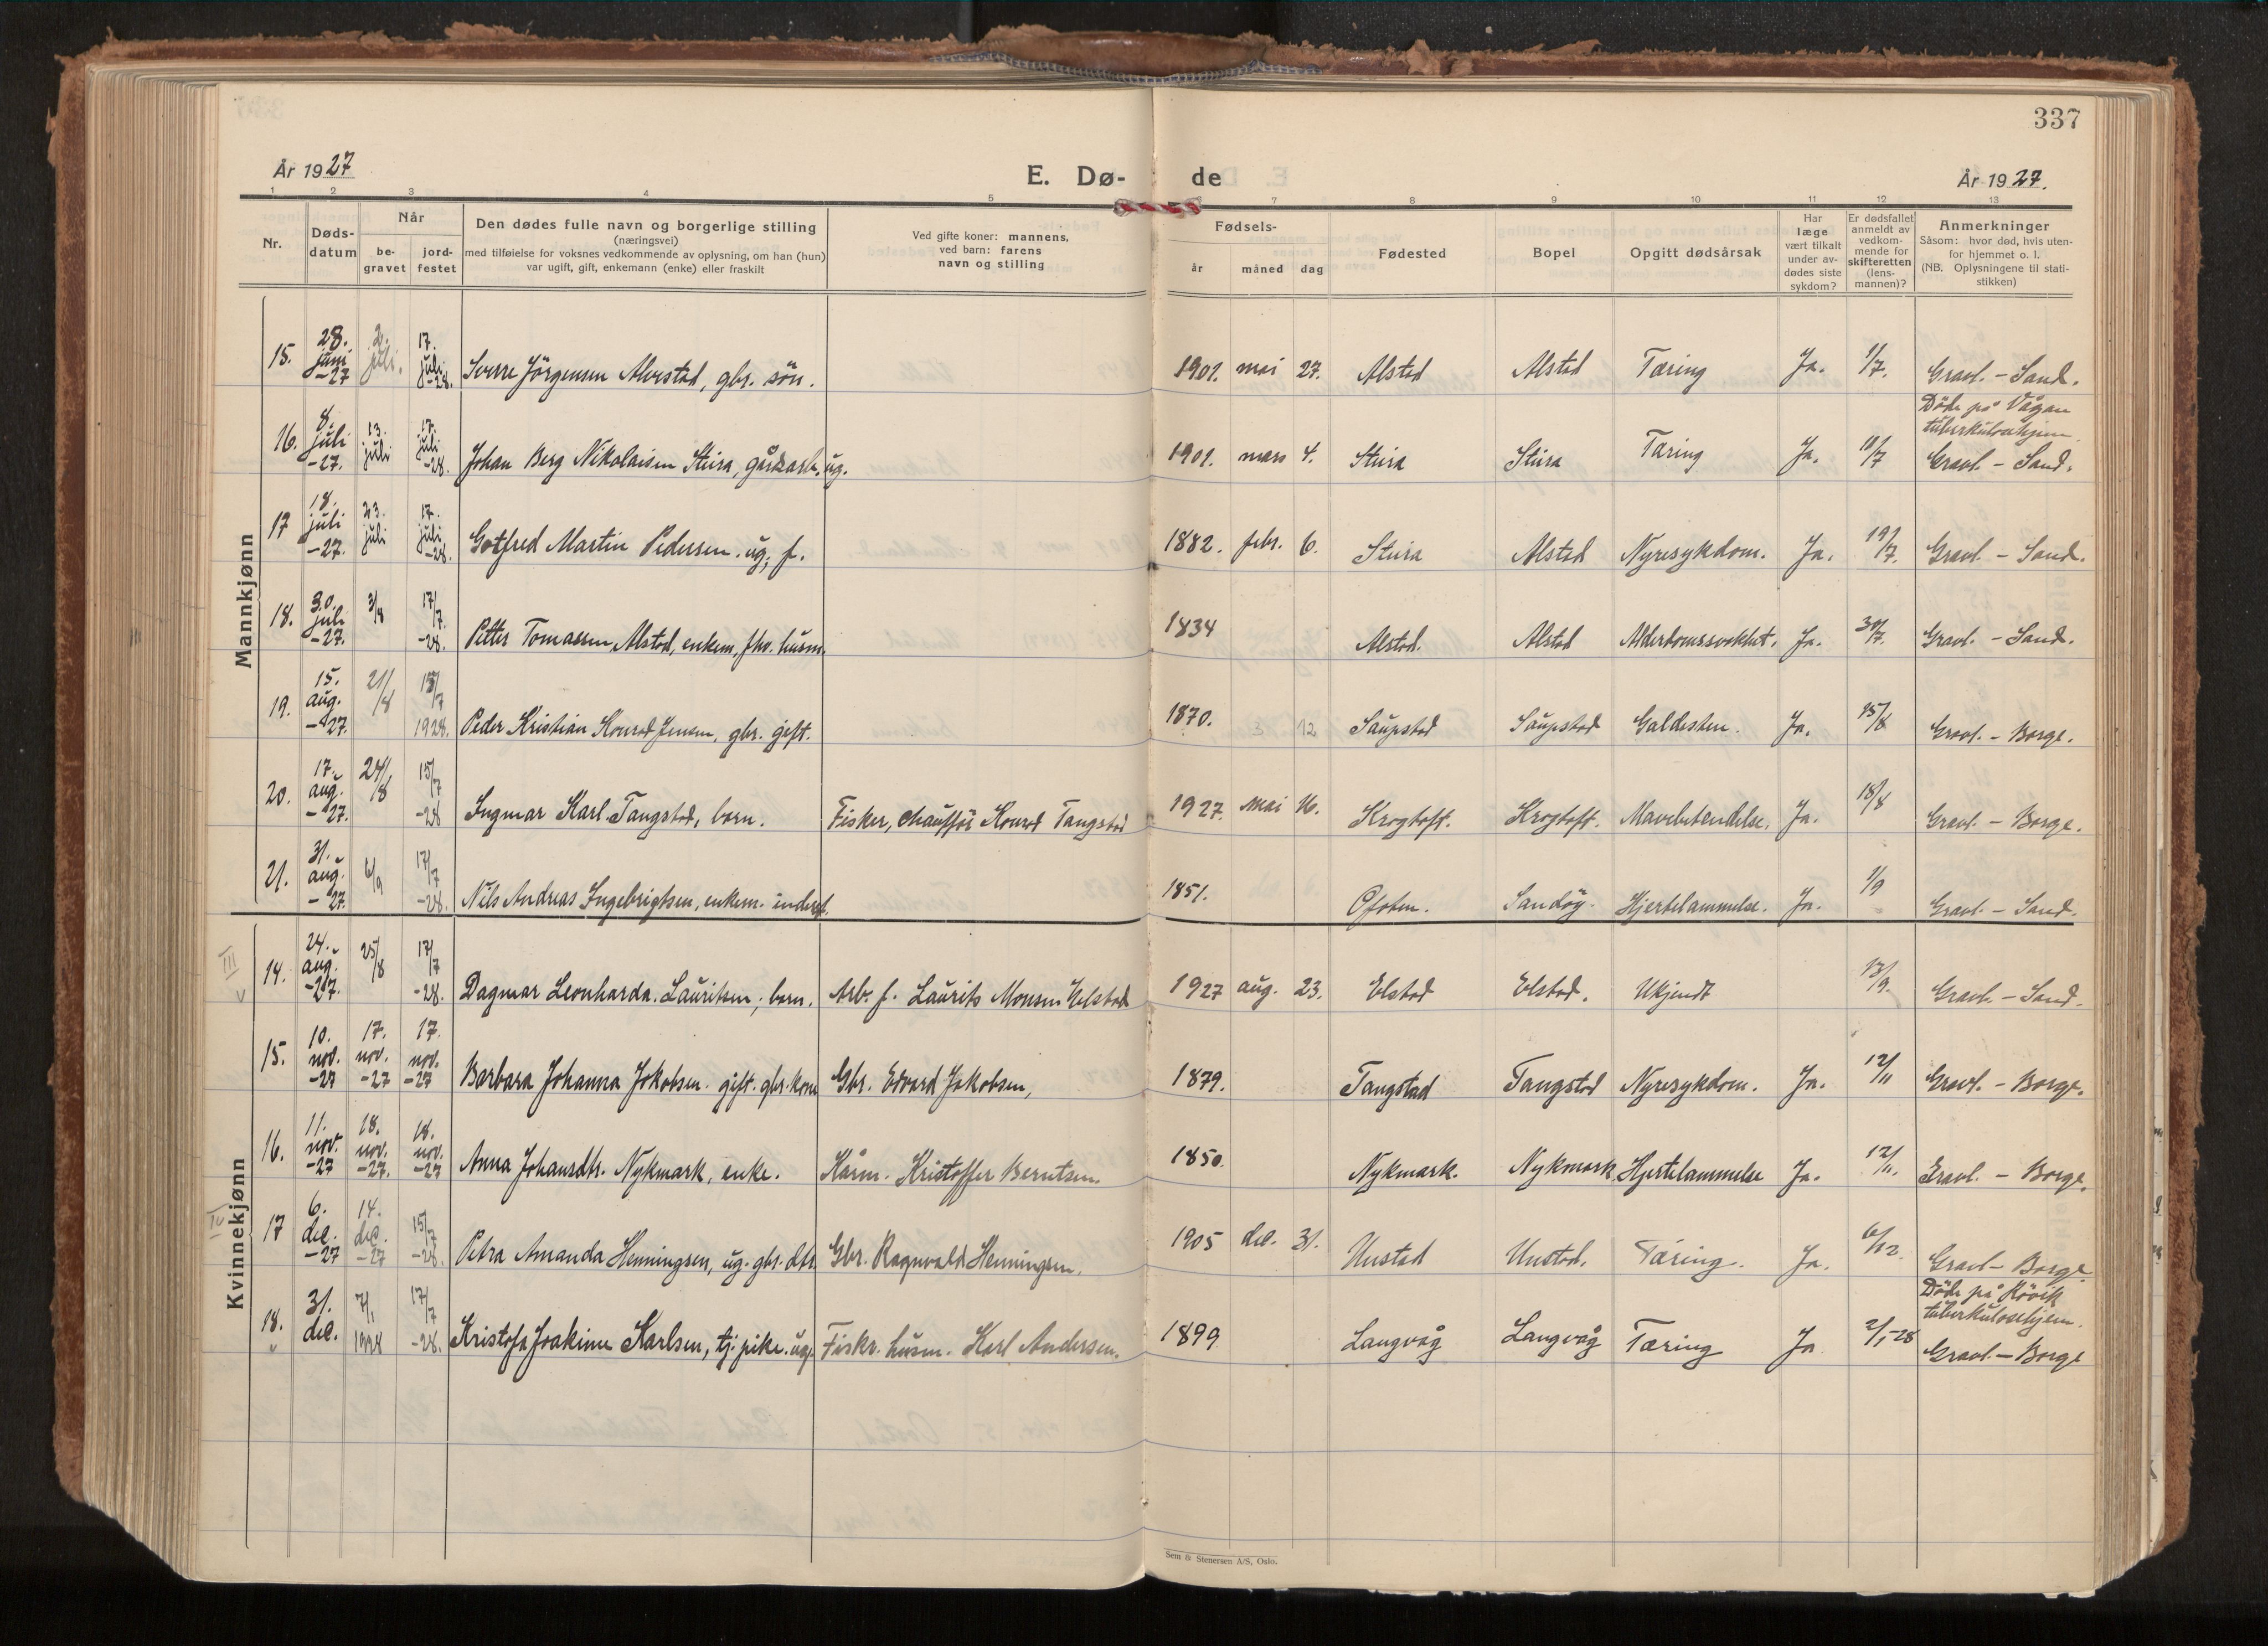 337
År 1927
E. Dø-
de
År 1927.
1 2 3 4 5 6 7 8 9 10 11 12 13
Nr.
Døds-
datum
Når
be-
gravet
jord-
festet
Den dødes fulle navn og borgerlige stilling
(næringsvei)
med tilføielse for voksnes vedkommende av oplysning, om han (hun)
var ugift, gift, enkemann (enke) eller fraskilt
Ved gifte koner: mannens,
ved barn: farens
navn og stilling
Fødsels-
år måned dag
Fødested
Bopel
Opgitt dødsårsak
Har
læge
vært tilkalt
under av-
dødes siste
sykdom?
Er dødsfallet
anmeldt av
vedkom-
mende for
skifteretten
(lens-
mannen)?
Anmerkninger
Såsom: hvor død, hvis uten-
for hjemmet o. l.
(NB. Oplysningene til stati-
stikken)
Mannkjønn
15. 28. juni -27 2. juli. 17. juli -28. Sverre Jörgensen Alvestad, gbr. sön. 1901. mai 27. Alstad Alstad Tæring Ja. 1/7. Gravl. - Sand.
16. 8. juli -27. 13. juli 17. juli -28 Johan Berg Nikolaisen Stura, gårdsarb. ug. 1901. mars 4. Stura Stura Tæring Ja. 10/7 Döde på Vågan
tuberkulosehjem.
Gravl. - Sand.
17 18. juli -27. 23. juli 17. juli -28 Gotfred Martin Pedersen. ug; f. 1882. febr. 6. Stura Alstad Nyresykdom. Ja. 19/7. Gravl. - Sand.
18. 30. juli -27. 3/8 17/7. -28. Petter Tomassen Alstad, enkem, fhv. husm. 1834 Alstad. Alstad Alderdomssvakhet. Ja. 30/7. Gravl. - Sand.
19. 15. aug. -27. 21/8 15/7 1928. Peder Kristian Konrad Jensen, gbr. gift. 1870. 3 12 Saupstad Saupstad Galdesten. Ja. 15/8 Gravl. - Borge.
20. 17. aug. -27. 24/8 15/7 -28 Ingmar Karl Tangstad, barn. Fisker, chaufför Konrad Tangstad 1927. mai 16. Krogtoft. Krogtoft. Mavebetendelse. Ja. 18/8 Gravl. - Borge.
21. 31. aug. -27. 6/9 17/7 -28. Nils Andreas Ingebrigtsen, enkem. inderst. 1851. Ofoten. Sandöy. Hjertelammelse. Ja. 1/9 Gravl. - Sand.
Kvinnekjønn
III
14. 24. aug. -27. 25/8 17/7 -28. Dagmar Leonharda Lauritsen, barn. Arb. f. Laurits Monsen Elstad 1927 aug. 23. Elstad Elstad. Ukjendt 13/9. Gravl. - Sand.
15. 10. nov. -27 17. nov. -27 17. nov. -27 Barbara Johanna Jakobsen. gift. gbr. kone Gbr. Edvard Jakobsen, 1879. Tangstad Tangstad Nyresykdom. Ja. 12/11 Gravl. - Borge.
16. 11. nov. -27 18. nov. -27. 18. nov. -27 Anna Johansdtr. Nykmark, enke. Kårm. Kristoffer Berntsen. 1850. Nykmark. Nykmark. Hjertelammelse Ja. 12/11. Gravl. - Borge.
IV
17 6. dec. -27 14. dec. -27 15/7 -28. Petra Amanda Henningsen, ug. gbr. dtr. Gbr. Ragnvald Henningsen. 1905 dec. 31. Unstad Unstad. Tæring. Ja. 6/12. Gravl - Borge.
18. 31. dec. 7/1 1928 17/7 -28. Kristofa Joakime Karlsen, tj. pike. ug. Fisker. husm. Karl Andersen. 1899 Langvåg Langvåg Tæring Ja 2/1-28 Döde på Rövik
tuberkulosehjem.
Gravl. - Borge
Sem & Stenersen A/S, Oslo.